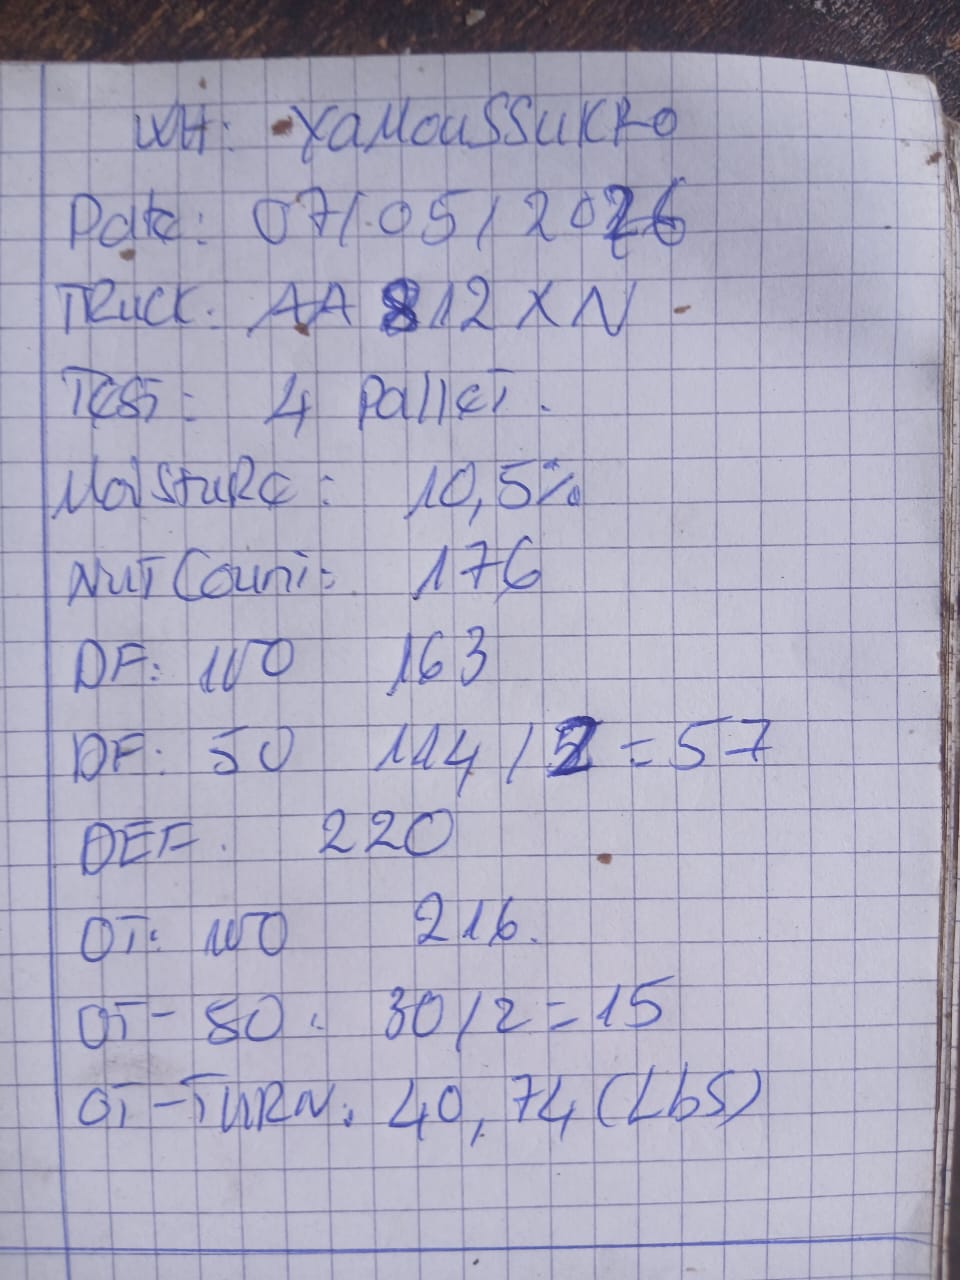 WH: YAMOUSSUKRO
Date: 07/05/2026
TRUCK: AA 812 XN
Test: 4 pallet.
Moisture: 10,5%
Nut Count: 176
DF: 100 163
DF: 50 114/2 = 57
DEF. 220
OT: 100 216.
OT-50: 30/2=15
OT-TURN: 40,74 (Lbs)